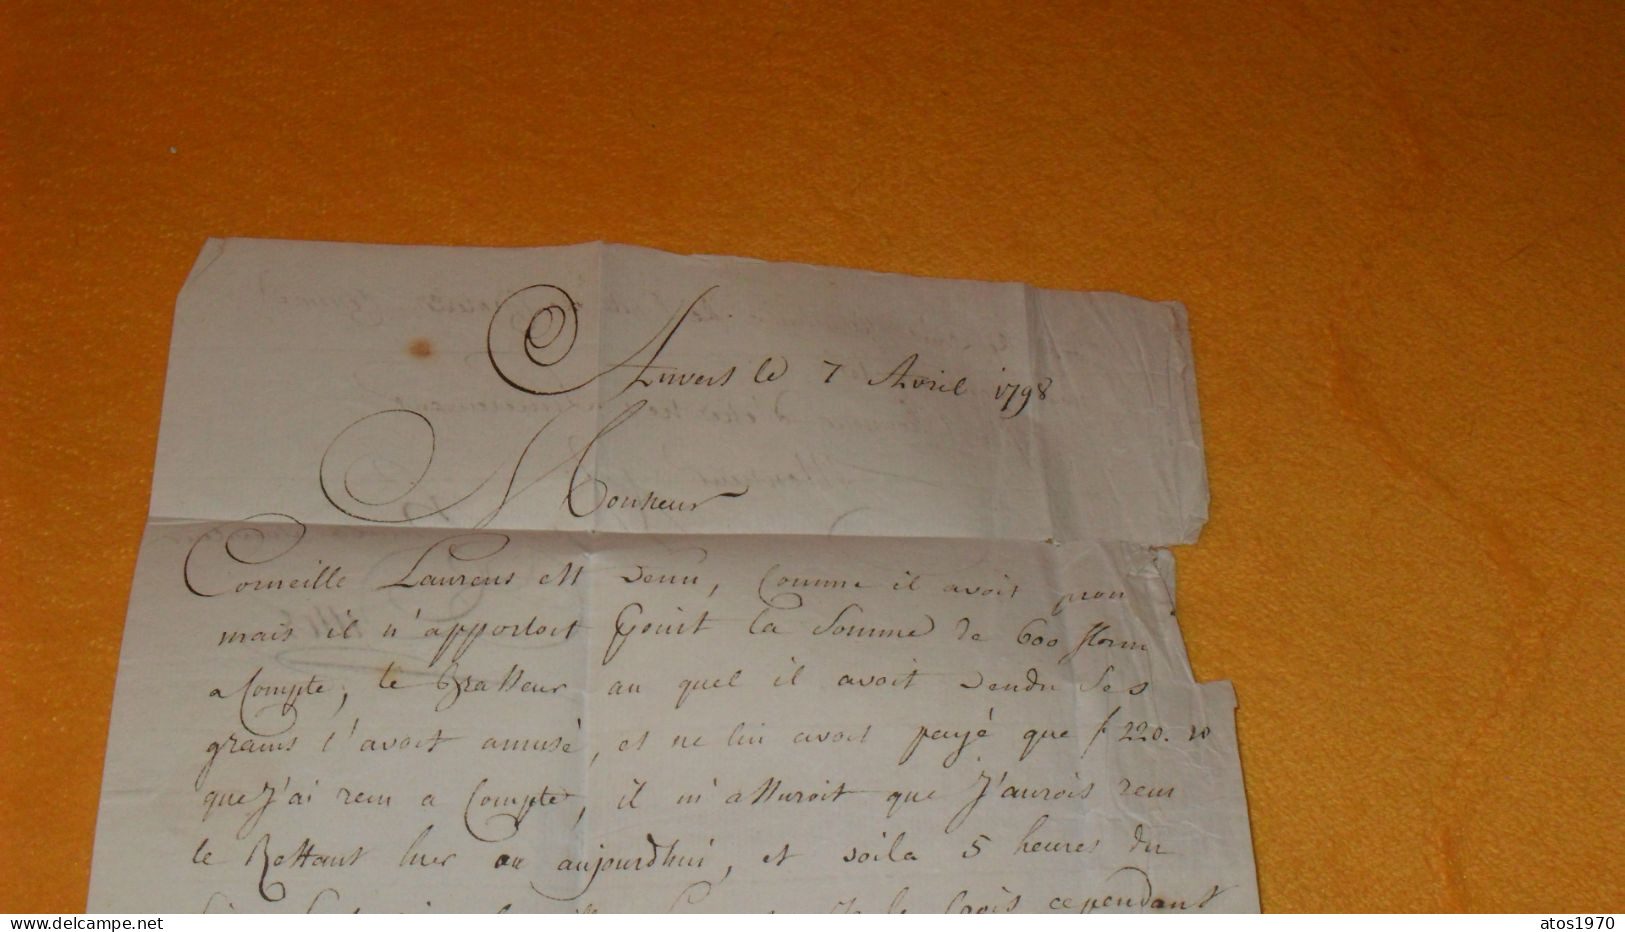 Anvers le 7 Avril 1798
Monsieur
Corneille Laurens est venu, Comme il avoit prom
mais il n'apportoit point la Somme de 600 florin
a Compte, le Brasseur au quel il avoit vendu Ses
grains l'avoit amusé, et ne lui avoit payé que f 220. 10
que J'ai recu a Compte, il m'assuroit que J'aurois recu
le Restant hier ou aujourdhui, et voila 5 heures du
Je le Crois cependant
www.delcampe.net
atos1970